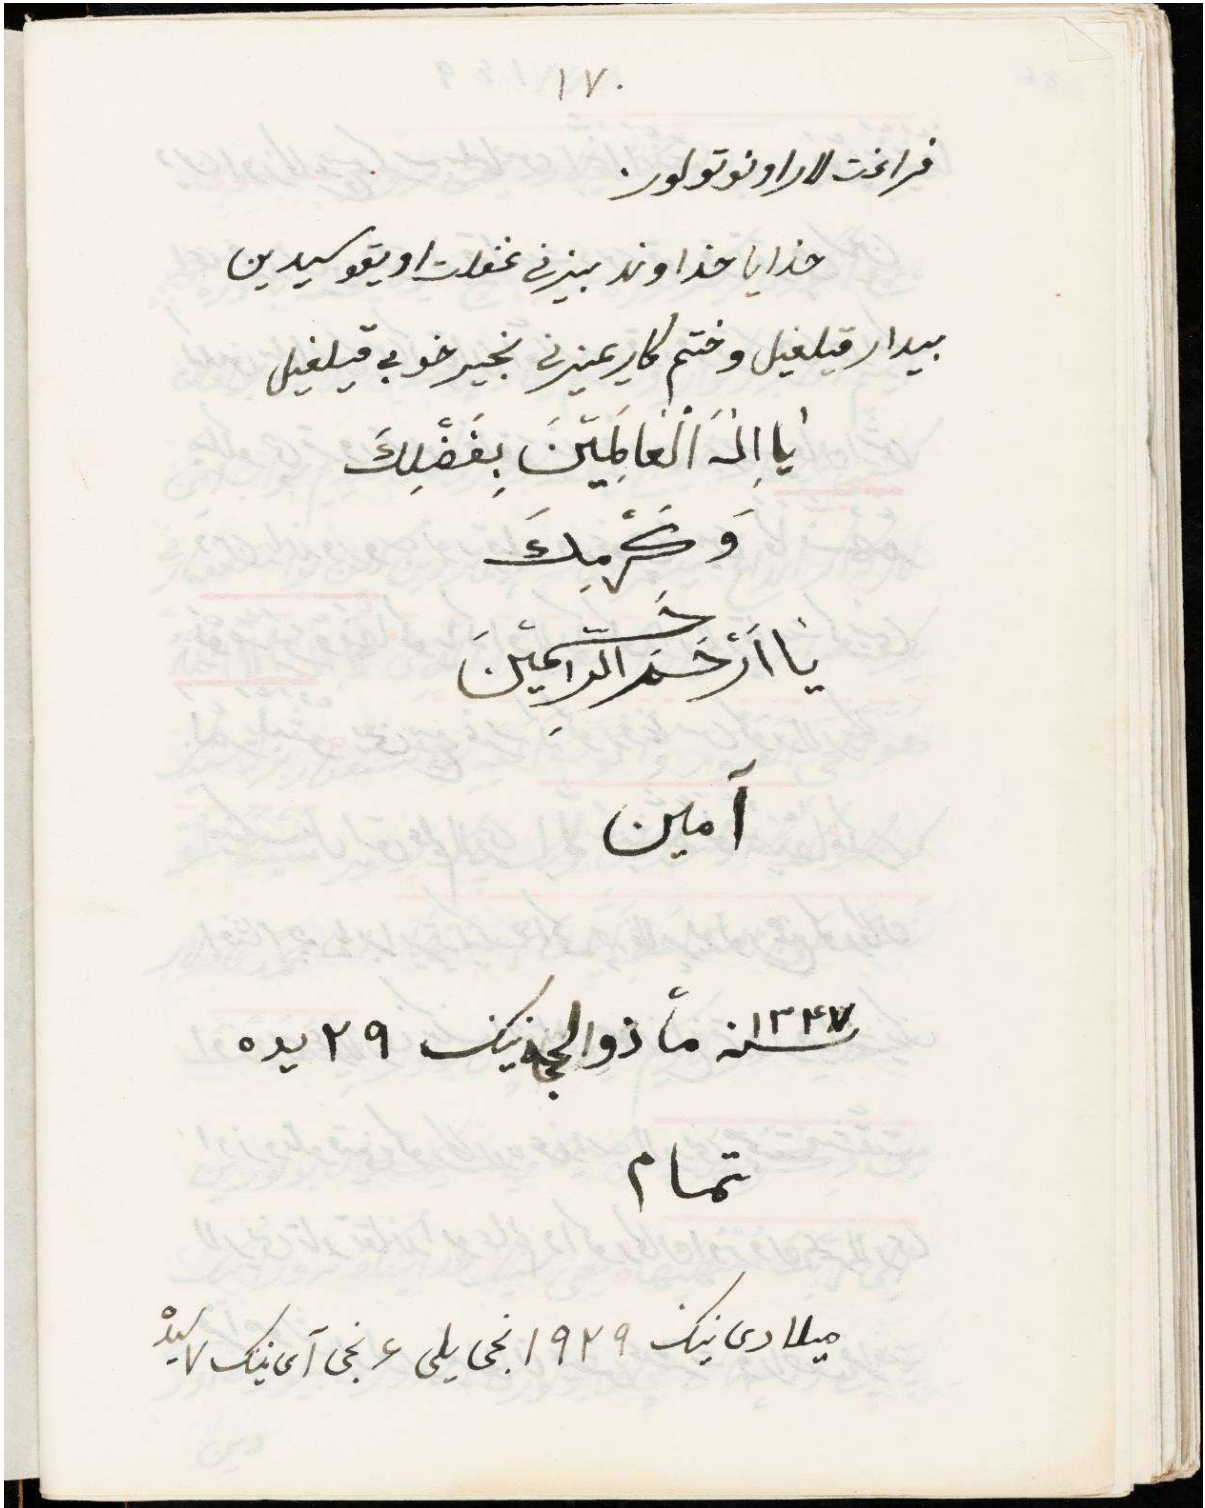 ١٧٠
فراغت لار اونوتولور
خدایا خداوند بیزنی غفلت اویقوسیدین
بیدار قیلغیل و ختم کاریمیزنی بخیر خوبی قیلغیل
يَا اِلٰهَ الْعَالَمِيْنَ بِفَضْلِكَ
وَ كَرَمِكَ
يَا اَرْحَمَ الرَّاحِمِيْنَ
آمین
سنه ١٣٤٧ ماه ذوالحجه نینک ٢٩ یده
تمام
میلادی نینک ١٩٢٩ نجی یلی ۶ نجی آی نینک ٧ سیده